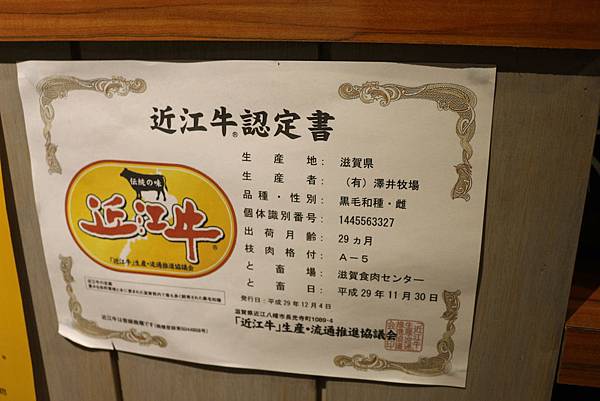 近江牛®認定書
伝統の味
近江牛
®
「近江牛」生産・流通推進協議会
生産地: 滋賀県
生産者: (有)澤井牧場
品種・性別: 黒毛和種・雌
個体識別番号: 1445563327
出荷月齢: 29ヵ月
枝肉格付: A-5
と畜場: 滋賀食肉センター
と畜日: 平成29年11月30日
発行日:平成29年12月4日
滋賀県近江八幡市長光寺町1089-4
「近江牛」生産・流通推進協議会
近江牛の定義
近江牛は登録商標です